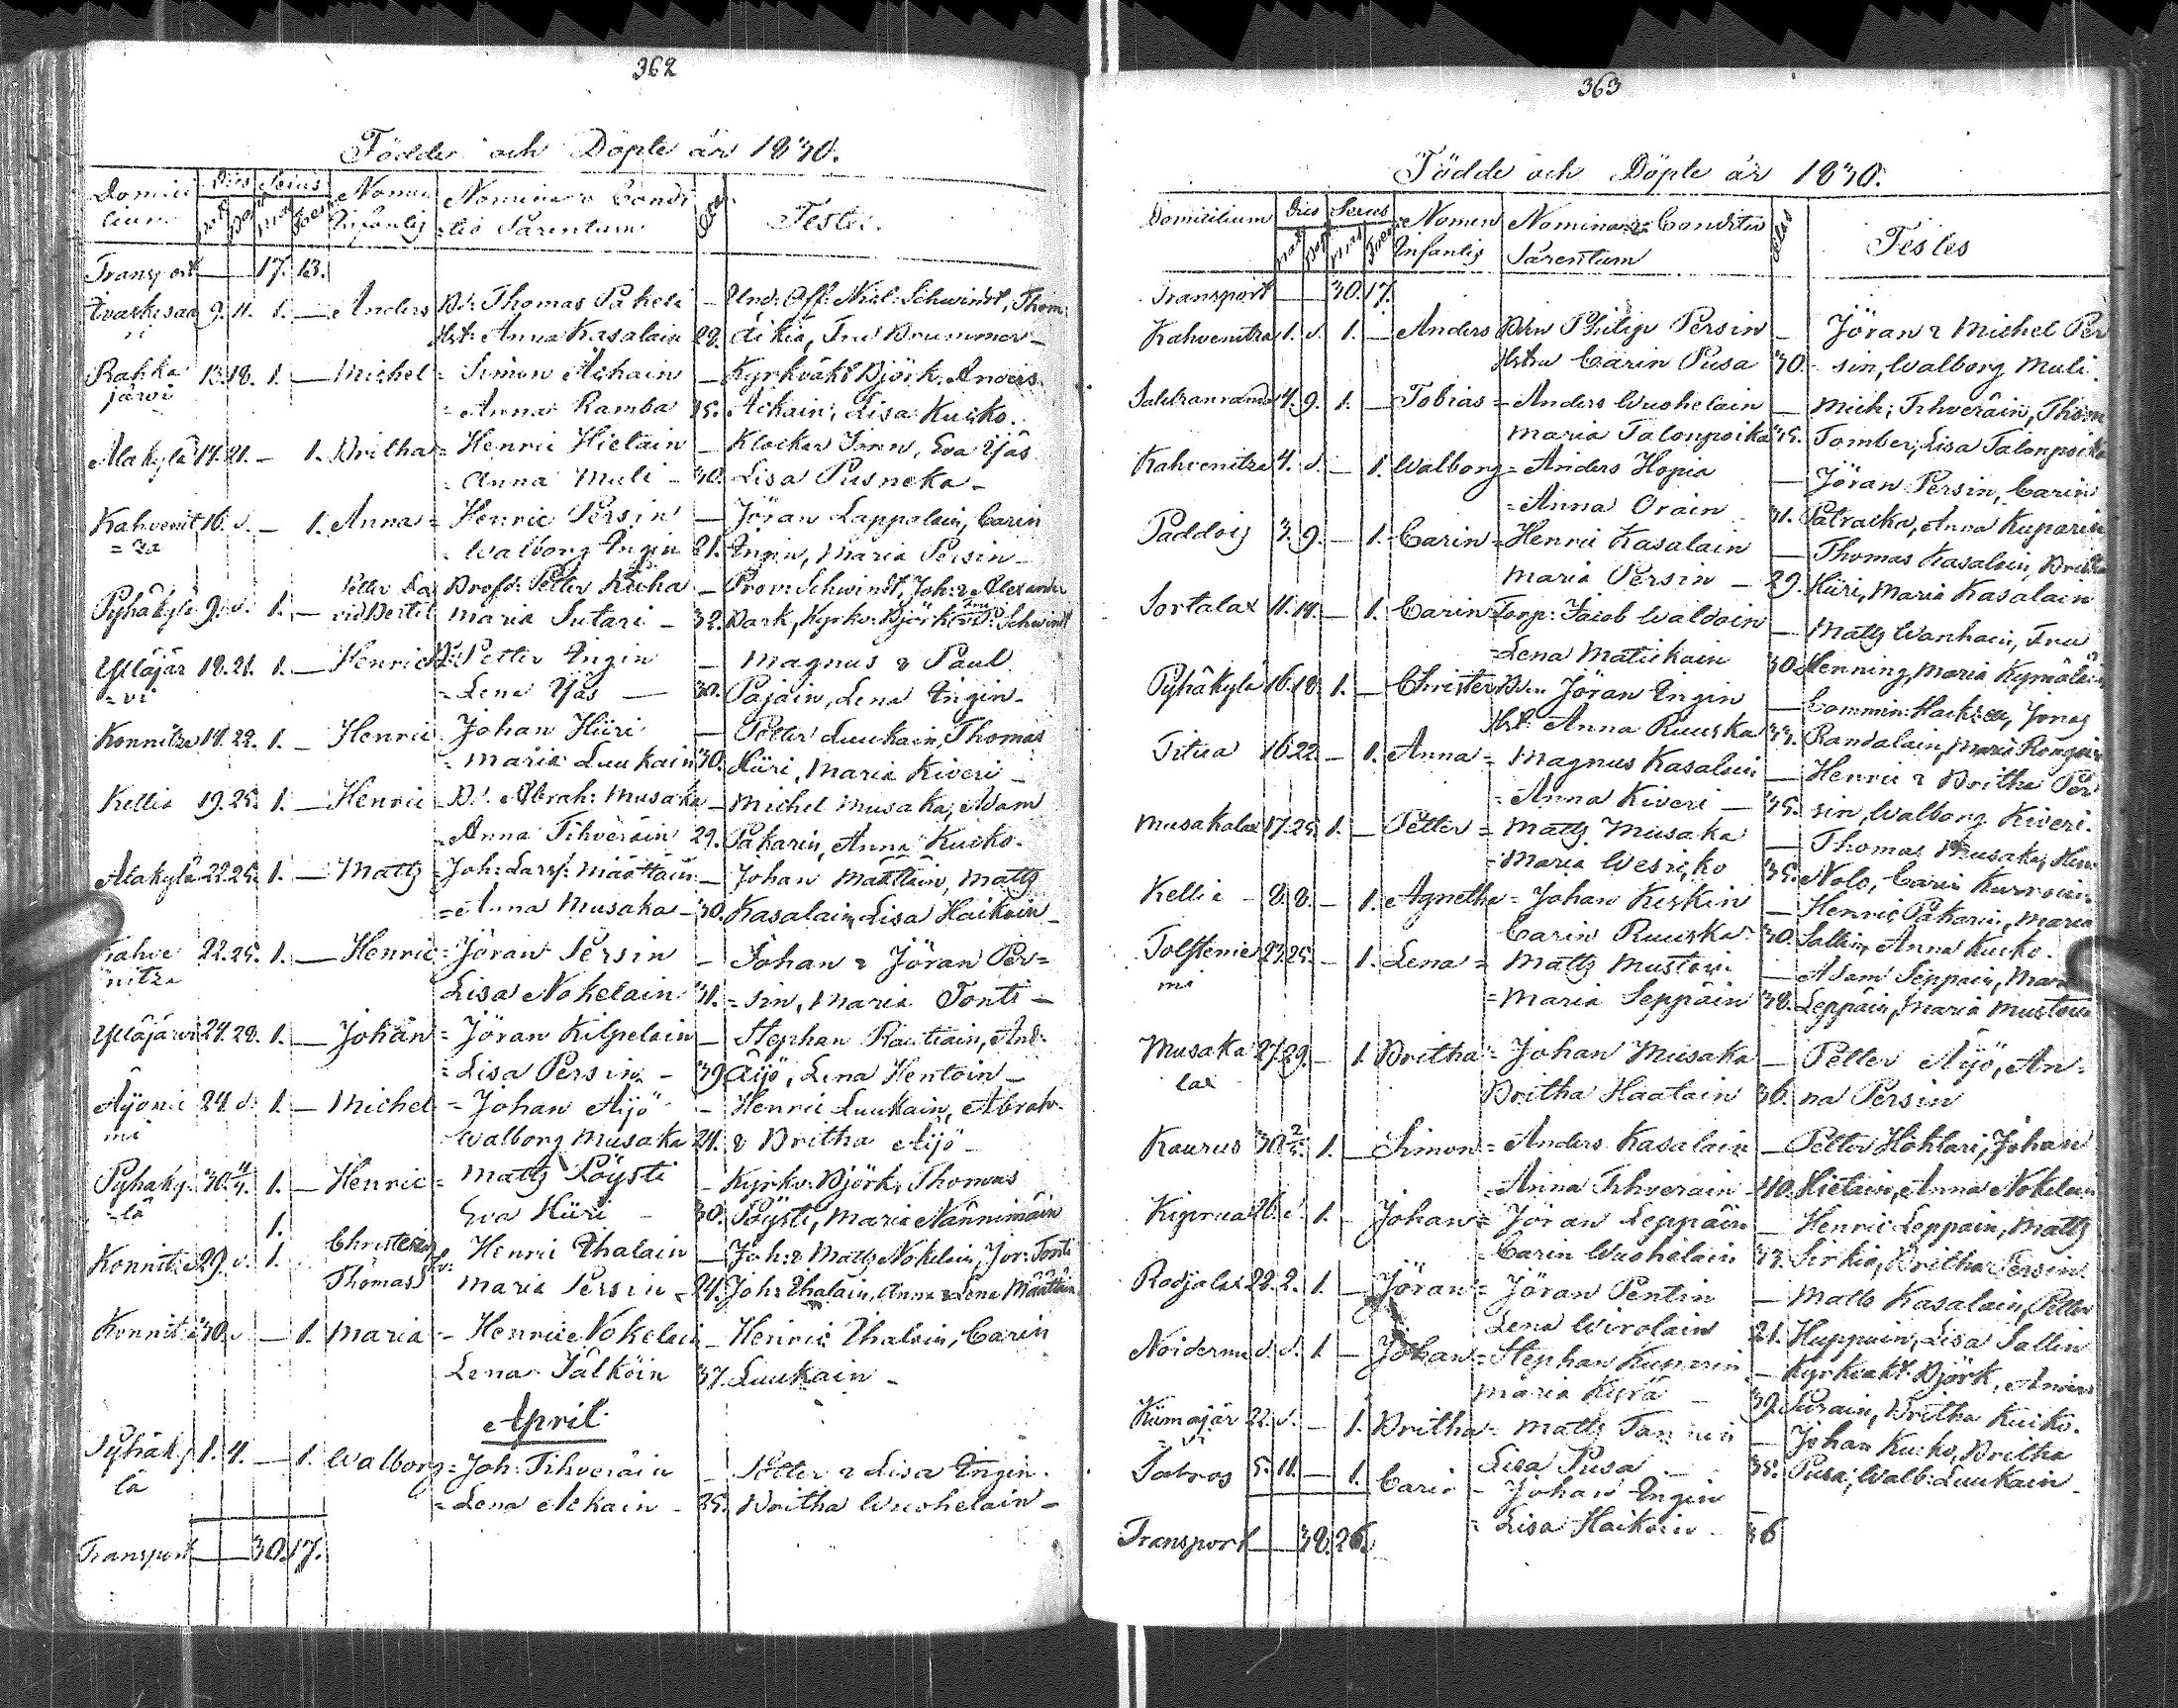 362
Födde och Döpte år 1830.
Domici Dies Sexus Nomen Nomina & Condi Testes.
lium Infantis tio Parentum
Transport — 17. 13.
9. 11. 1. — Anders Thomas Pakeli — Und: Off: Schwindt, Thom
Anna Kasalain 28. Äikiä, Fru Brummer —
Rahka 13. 18. 1. — Michel = Simon Äikäin — Kyrkväkt Björk, Anders
järvi = Anna Ramba 25. Äikäin, Lisa Kuiko.
Alakylä 14. 21. — 1. Britha = Henric Hietain — Klockar Eva Yjäs
= Anna Muli — 30. Lisa Pusneka —
Kahvenit 16. d. — 1. Anna = Henric Persin — Jöran Lappalain, Carin
= za = Walborg Ingin 21. Ingin, Maria Persin —
Pyhäkylä 9. d. 1. — Petter Da Petter Kuha — Schwindt, Joh: & Alexander
vid Bertil Maria Sutari — 32. Bark, Kyrkv: Björk Schwindt
Ylläjär 18. 21. 1. — Henric Petter Ingin — Magnus & Paul
= vi = Lena Yjäs — 32. Pajain, Lena Ingin —
Konnitza 19. 22. 1. — Henric Johan Hiiri — Petter Luukain, Thomas
= Maria Luukain 30. Hiiri, Maria Kiveri —
Kellia 19. 25. 1. — Henric Abrah: Musaka — Michel Musaka, Adam
= Anna Tihveräin 29. Pakarin, Anna Kuiko.
Alakylä 22. 25. 1. — Matts = Joh: Larss: Määttäin — Johan Määttäin, Matts
= Anna Musaka — 30. Kasalain, Lisa Haikoin —
Kahve 22. 25. 1. — Henric = Jöran Persin — Johan & Jöran Per=
nitza Lisa Nokelain 31. = sin, Maria Tonti —
Ylläjärvi 24. 28. 1. — Johan = Jöran Kilpelain — Stephan Rautiain, And:
= Lisa Persin — 39. Äijö, Lena Hentoin —
Äijöni 24. d. 1. — Michel = Johan Äijö — Henric Luukain, Abrah.
mi Walborg Musaka 24. & Britha Äijö —
Pyhäky 30. 4/4. 1. — Henric = Matts Pöysti — Kyrkv: Björk, Thomas
= lä Eva Hiiri — 30. Pöysti, Maria Nännimäin
1. Christer
Konnitza 29. d. 1. Henric Ihalain — Joh: & Matts Nokelain, Jör: Tonti
Thomas Maria Persin — 24. Joh: Ihalain, Anna & Lena Määttäin
Konnitza 30. d. — 1. Maria = Henric Nokelain — Henric Ihalain, Carin
Lena Jälköin 37. Luukain —
April.
Pyhäky 1. 4. — 1. Walborg = Joh: Tihveräin — Petter & Lisa Ingin
lä = Lena Äikäin — 25. Britha Wuohelain —
Transport — 30. 17.
363
Födde och Döpte år 1830.
Domicilium Dies Sexus Nomen Nomina & Conditio Testes
Infantis Parentum
Transport — 30. 17.
Kahvenitza 1. d. 1. — Anders Philip Persin — Jöran & Michel Per
Carin Pusa 30. sin, Walborg Muli.
4. 9. 1. — Tobias = Anders Wuohelain — Mich: Tihveräin, Thom
Maria Talonpoika 35. Tomber, Lisa Talonpoika
Kahvenitza 4. d. — 1. Walborg = Anders Hopia — Jöran Persin, Carin
= Anna Orain 31. Patraika, Anna Kuparin
Paddois 3. 9. — 1. Carin = Henric Kasalain — Thomas Kasalain, Britha
Maria Persin — 29. Hiiri, Maria Kasalain
Sortalax 11. 14. — 1. Carin Torp: Jacob Waldoin — Matts Wanhain, Fru
= Lena Matiskain 30. Henning, Maria Kymäläin
Pyhäkylä 16. 18. 1. — Christer Jöran Ingin — Jonas
Anna Ruuska 33. Randalain, Maria
Titua 16. 22. — 1. Anna = Magnus Kasalain — Henric & Britha Per
= Anna Kiveri — 35. sin, Walborg Kiveri.
Musakalax 17. 25. 1. — Petter = Matts Musaka — Thomas Musaka, Hen
= Maria 35. Nolo, Carin
Kellia — 8. 8. — 1. Agnetha = Johan Kiskin — Henric Pakarin, Maria
Carin Ruuska 30. Sallin, Anna Kuiko.
23. 25. — 1. Lena = Matts Mustoin — Adam Seppäin, Maria
mi = Maria Seppäin 38. Leppäin, Maria Mustoin
Musaka 27. 29. — 1. Britha = Johan Musaka — Petter Äijö, An=
lax Britha Haatain 36. na Persin
Kaurus 30. 2/5. 1. — Simon = Anders Kasalain — Petter Hohlari, Johan
= Anna Tihverain 40. Hietain, Anna Nokelain
Kiprua 26. d. 1. — Johan = Jöran Leppäin — Henric Leppäin, Matts
= Carin Wuohelain 33. Sirkiä, Britha Persin
Rodjalax 22. 2. 1. — Jöran = Jöran Pentin — Matts Kasalain, Petter
Lena Wirolain 21. Huppoin, Lisa Sallin
Noiderma d. d. 1 — Johan = Stephan Kuparin — Kyrkväkt Björk, Anders
Maria Kyrä — 39. Purain, Britha Kuiko.
Kiimajär 22. d. — 1. Britha = Matts Tannin — Johan Kuiko, Britha
= vi Lisa Pusa — 35. Pusa, Walb: Luukain —
5. 11. — 1. Carin — Johan Ingin
= Lisa Haikoin — 36
Transport — 38. 26.